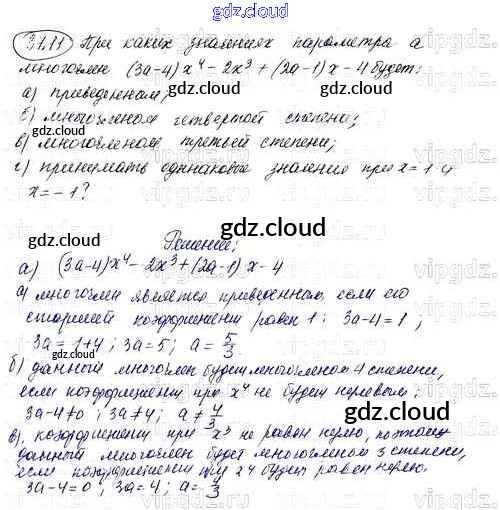 gdz.cloud
31.11 При каких значениях параметра а
многочлен (3а-4)x⁴-2x³+(2а-1)x-4 будет:
а) приведенным;
б) многочленом четвертой степени;
в) многочленом третьей степени;
г) принимать одинаковые значения при x=1 и
x=-1?
gdz.cloud
Решение:
а) (3а-4)x⁴-2x³+(2а-1)x-4
а) многочлен является приведенным, если его
старший коэффициент равен 1: 3а-4=1;
3а=1+4; 3а=5; а=5/3.
б) данный многочлен будет многочленом 4 степени,
если коэффициент при x⁴ не будет нулевым:
3а-4≠0; 3а≠4; а≠4/3
в). коэффициент при x³ не равен нулю, поэтому
данный многочлен будет многочленом 3 степени,
если коэффициент при x4 будет равен нулю.
3а-4=0; 3а=4; а=4/3
gdz.cloud
gdz.cloud
gdz.cloud
gdz.cloud
gdz.cloud
gdz.cloud